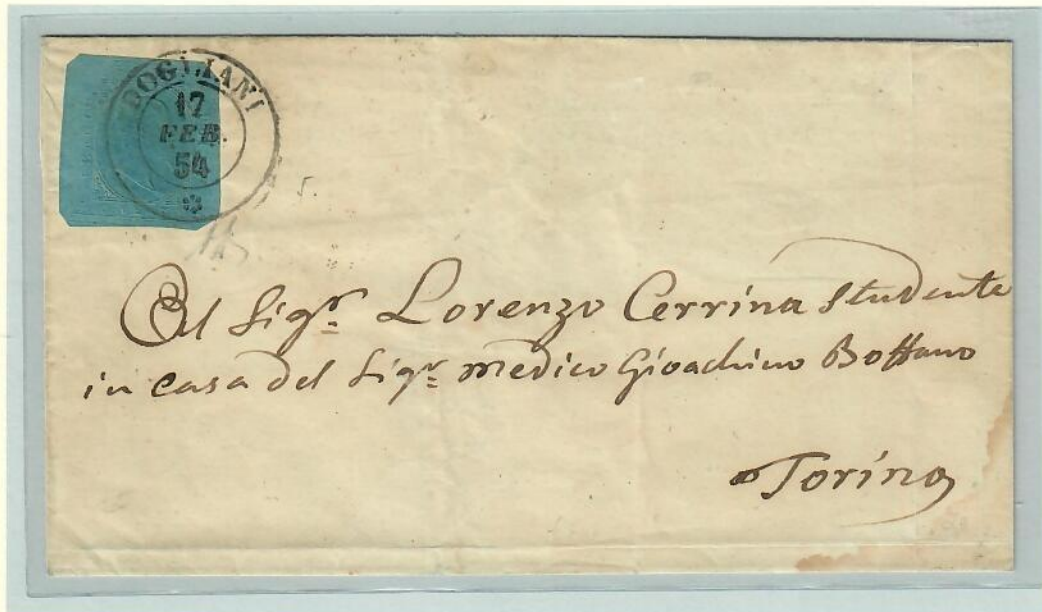 DOGLIANI
17
FEB.
54
5.
Al Sigr. Lorenzo Cerrina Studente
in casa del Sigr. medico Gioachino Boffano
Torino